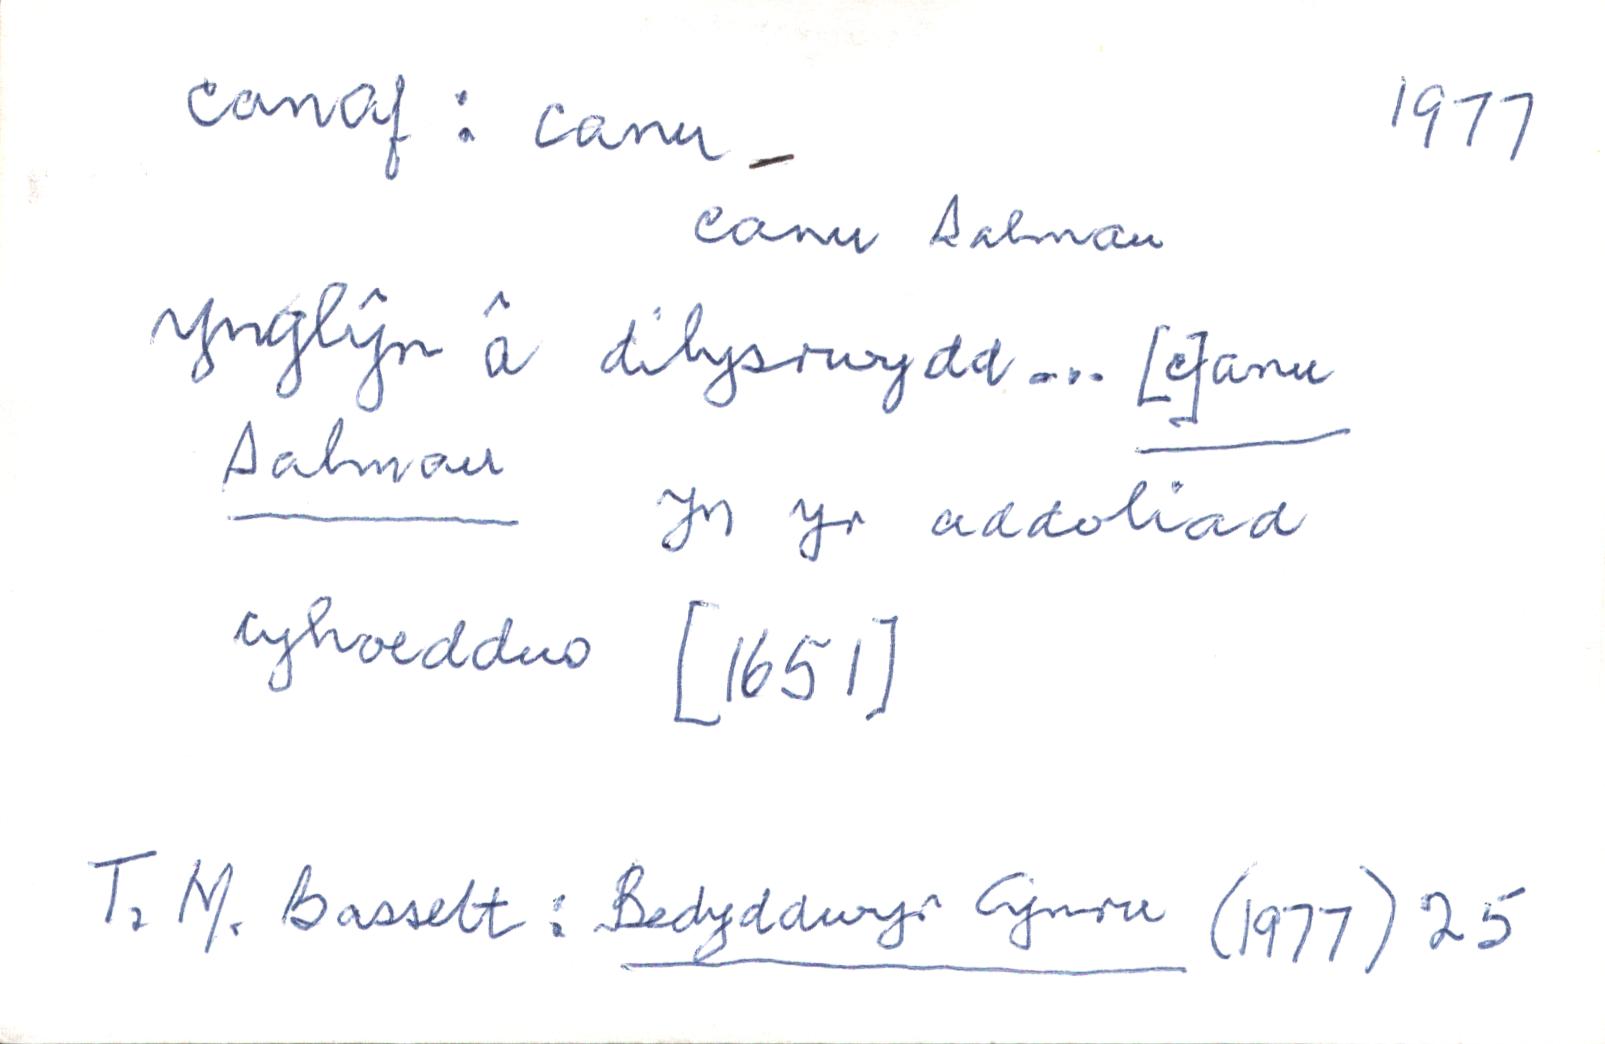 canaf : canu –
1977
canu Salmau
ynglŷn â dilysrwydd ... [c]anu
Salmau yn yr addoliad
cyhoeddus [1651]
T. M. Bassett : Bedyddwyr Cymru (1977) 25